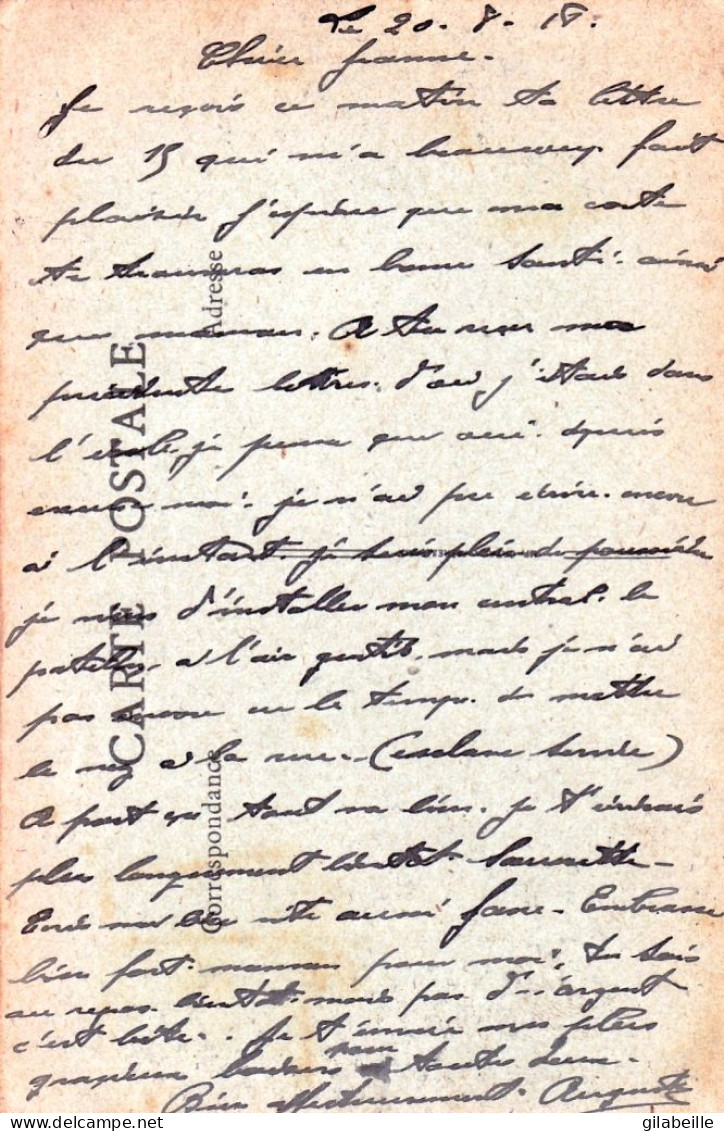 Le 20. 8. 18.
Chère Jeanne.
Je reçois ce matin ta lettre
du 15 qui m'a beaucoup fait
plaisir j'espère que ma carte
te trouveras en bonne santé. ainsi
que maman. A tu reçu mes
précédente lettres. d'où j'étais dans
l' je pense que oui. depuis
excuse moi. je n'ai pu écrire. encore
a l'instant. je suis plein de poussière
je viens d'installer mon central. le
patelin a l'air gentil. mais je n'ai
pas encore eu le temps. de mettre
le nez a la rue. (esclave)
A part ça tout va bien. je t'écrirais
plus longuement bientôt
vite aussi Jane. Embrasse
bien fort. maman pour moi, tu sais
au repos. bientôt. mais pas d'argent
c'est bête. Je t'envoie mes plus
gracieux baisers pour toutes deux.
Bien affectueusement. Auguste
CARTE POSTALE
Correspondance
Adresse
gilabeille